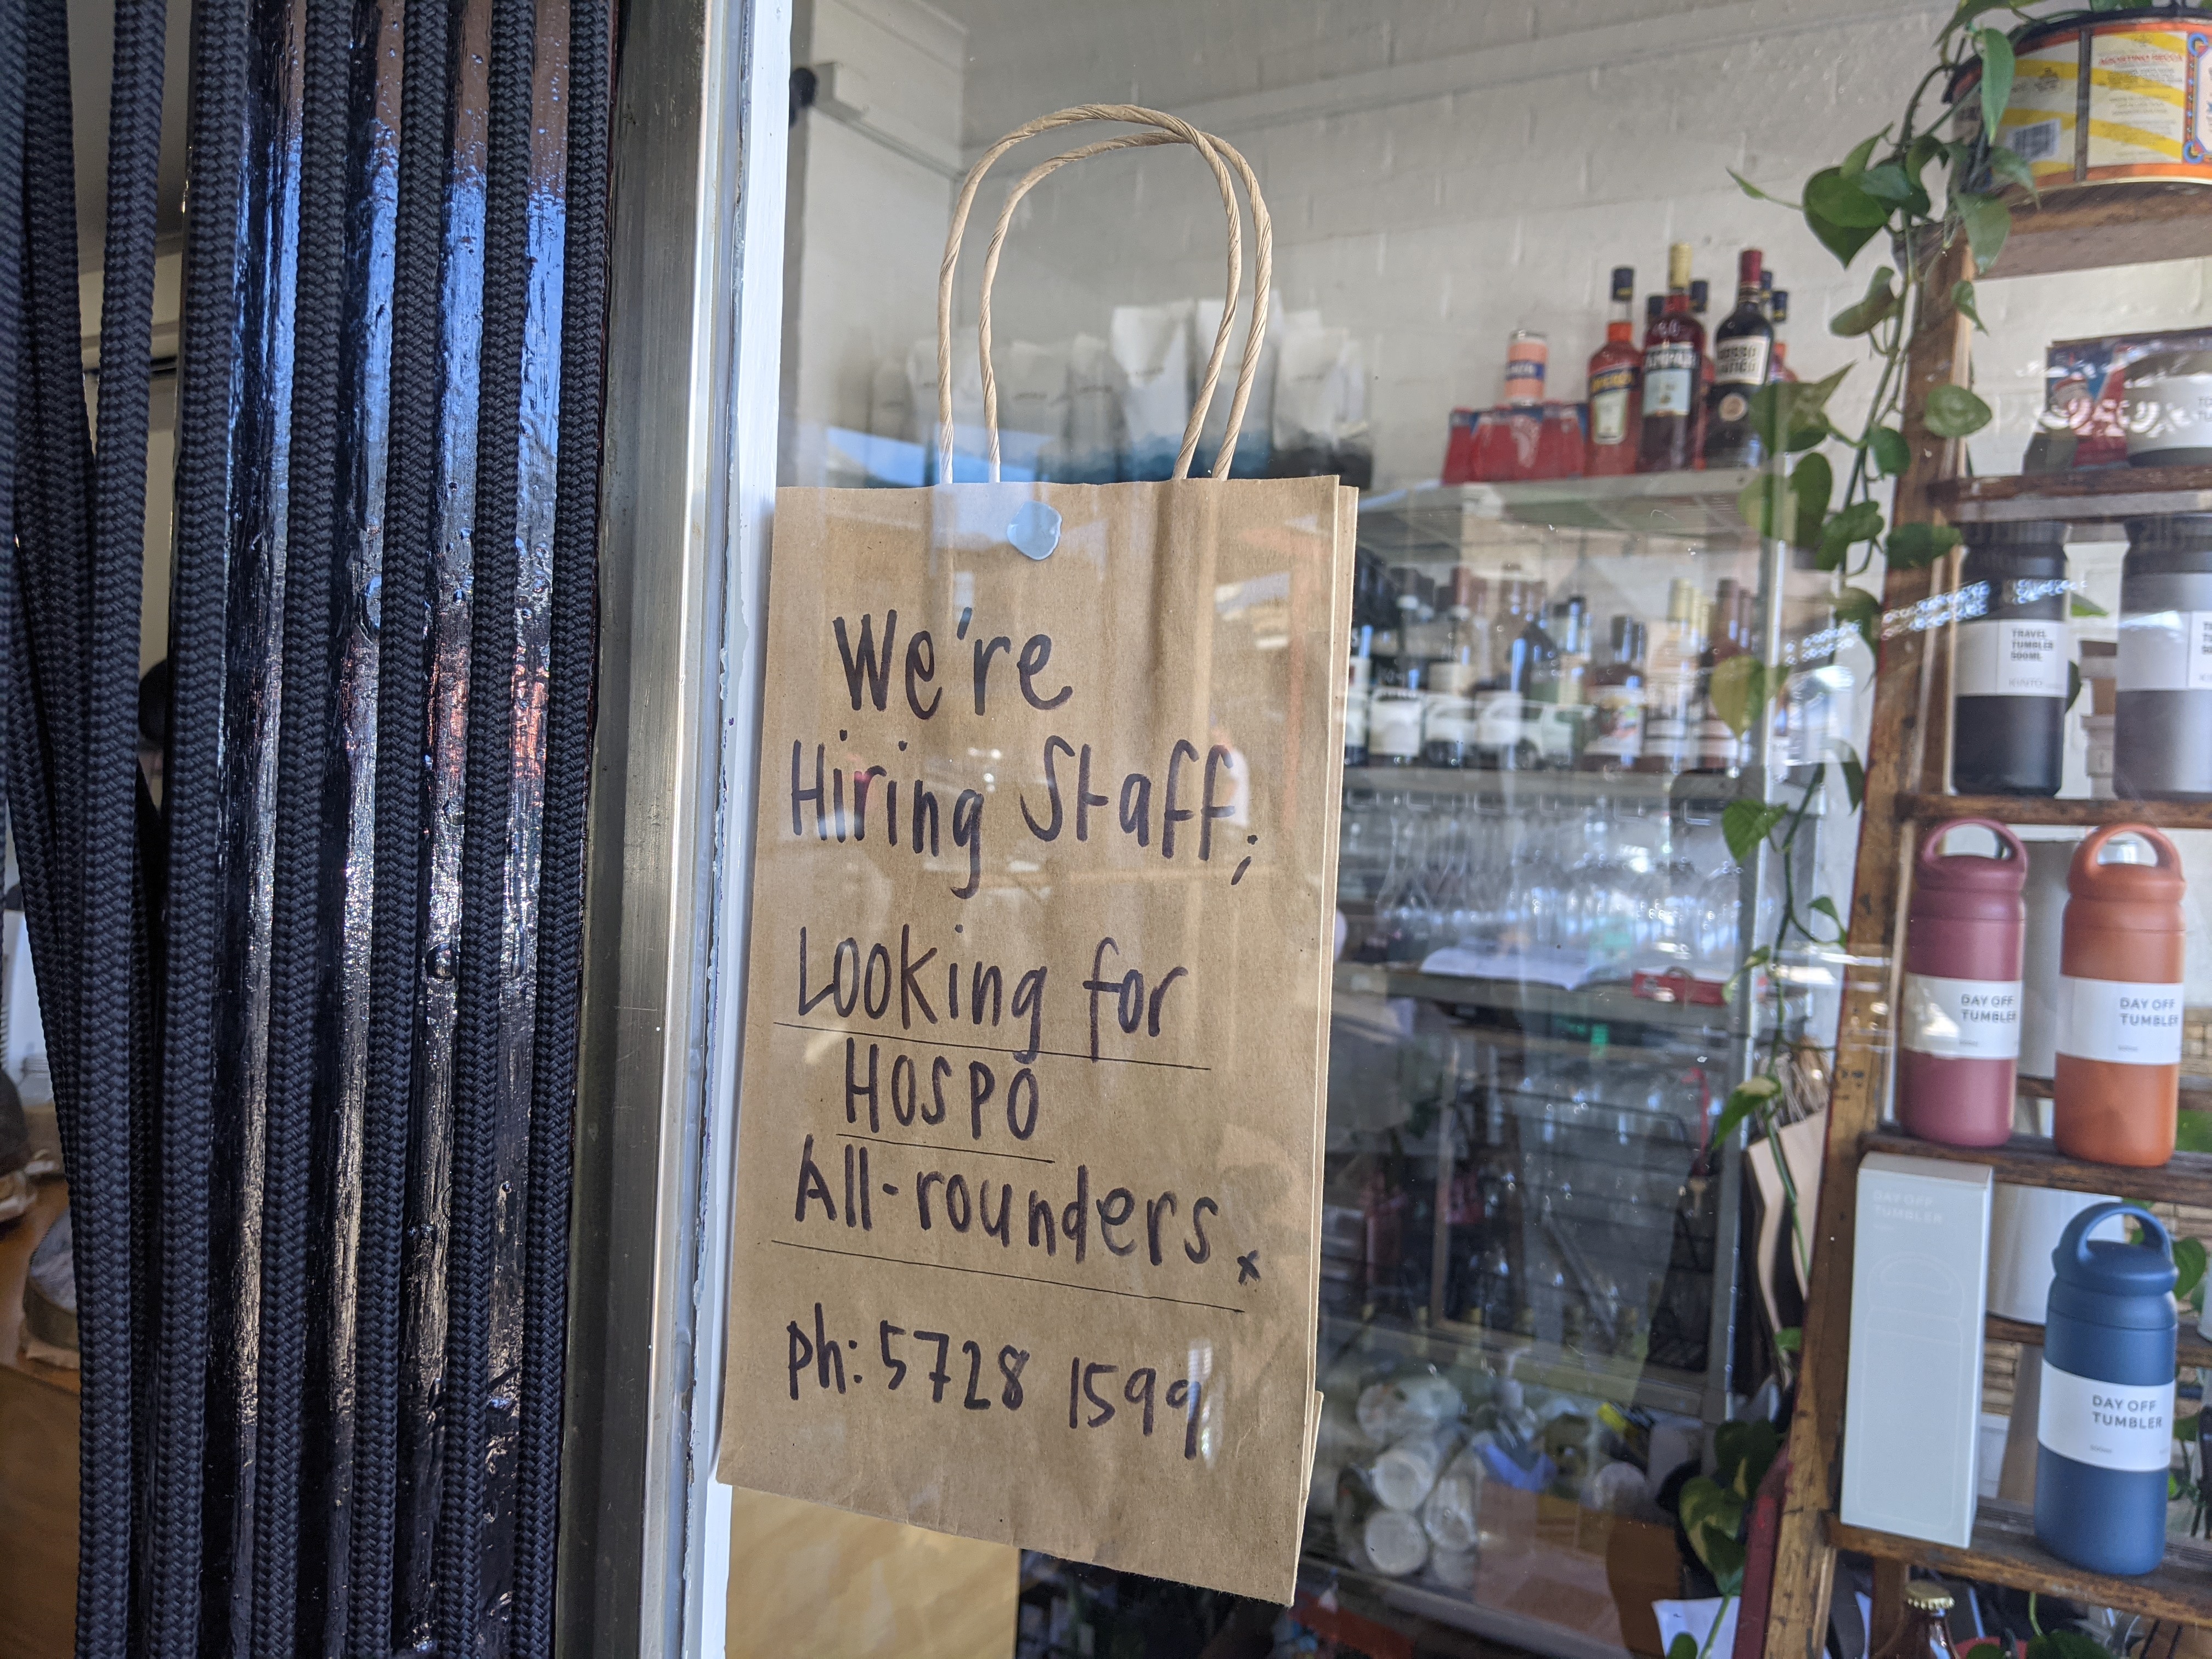 We're
Hiring Staff;
Looking for
HOSPO
All-rounders.
x
ph: 5728 1599
TRAVEL
TUMBLER
500ML
KINTO
DAY OFF
TUMBLER
DAY OFF
TUMBLER
DAY OFF
TUMBLER
DAY OFF
TUMBLER